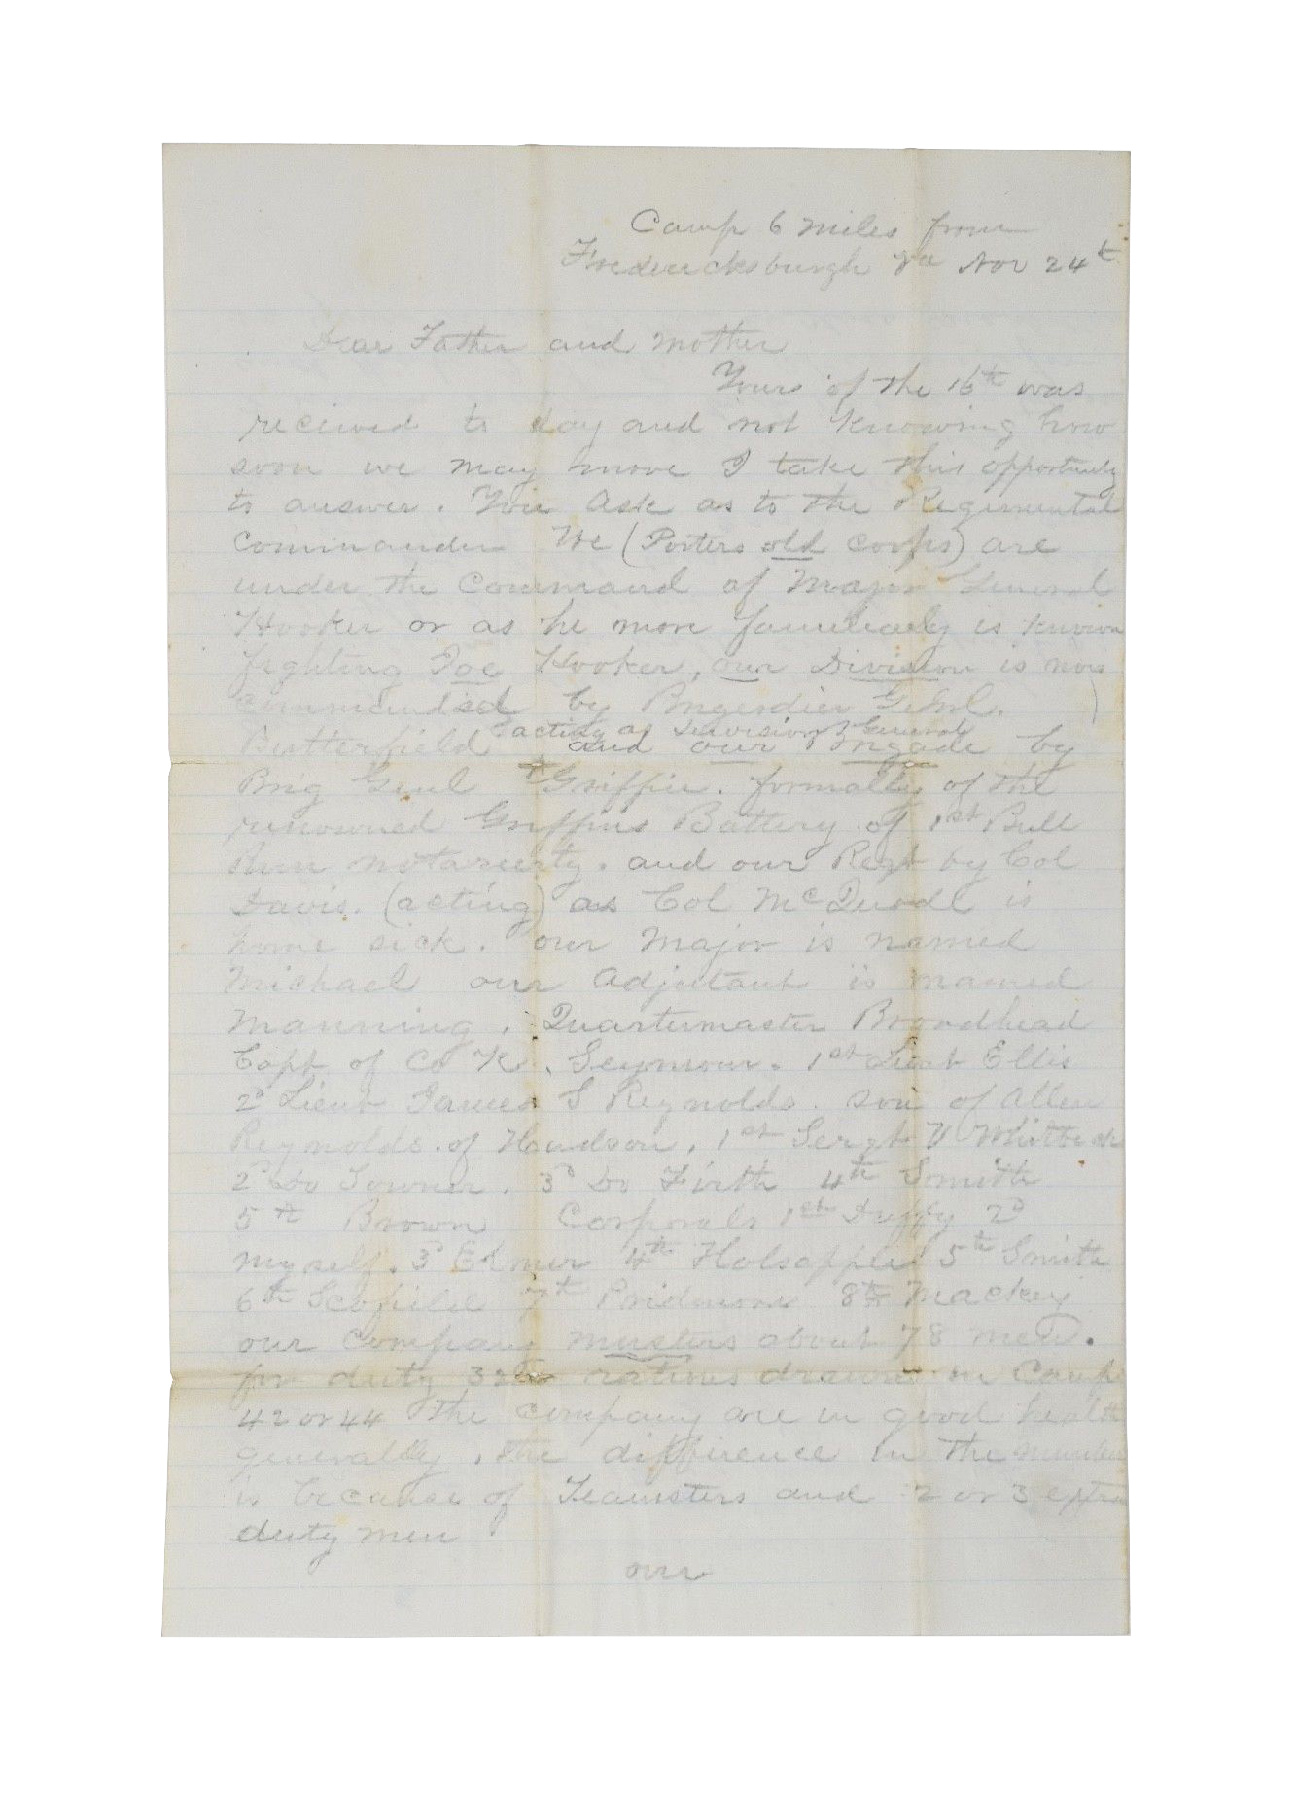 Camp 6 miles from
Fredericksburgh Va Nov 24t
Dear Father and Mother
Yours of the 16th was
received to day and not knowing how
soon we may move I take this opportunity
to answer. You Ask as to the Regimental
Commander We (Porters old corps) are
under the Command of Major General
Hooker or as he more familiarly is known
fighting Joe Hooker, our Division is now
commanded by Brigadier Genl.
acting as Division General
Butterfield and our Brigade by
Brig Genl Griffin. formally of the
renowned Griffins Battery of 1st Bull
Run notariety. and our Regt by Col
Davis. (acting) as Col McQuade is
home sick. our Major is named
Michael our Adjutant is named
Manning. Quartermaster Broadhead
Capt of Co K. Seymour. 1st Lieut Ellis
2d Lieut James S Reynolds. son of Allen
Reynolds. of Hudson, 1st Sergt V
2d Do Towner. 3d Do Firth 4th Smith
5th Brown Corporals 1st Duffy 2d
myself. 3d Elmer 4th Holsapple 5th Smith
6th Scofield 7th Pridmore 8th Mackey
our company musters about 78 men.
for duty 32 rations drawn in Camp
42 or 44 The company are in good health
generally, the difference in the number
is because of Teamsters and 2 or 3 extra
duty men.
over